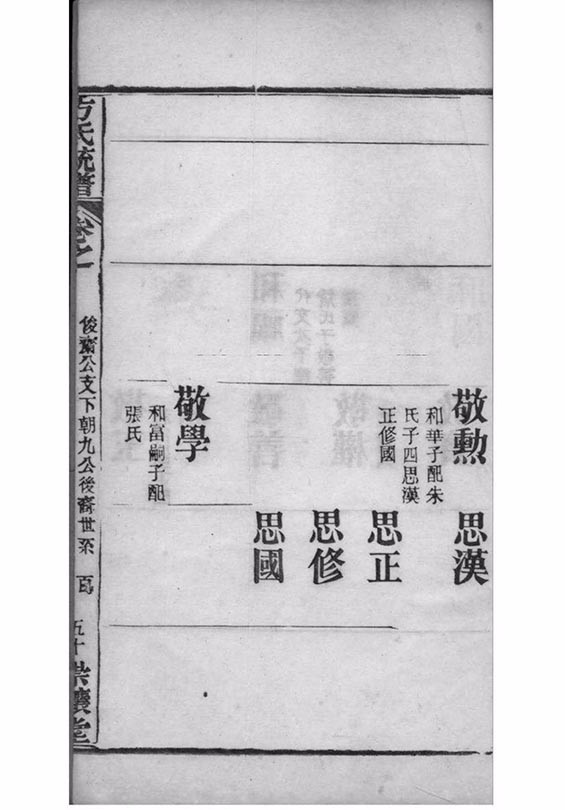 敬勳
和華子配朱
氏子四思漢
正修國
思漢
思正
思修
思國
敬學
和富嗣子配
張氏
方氏統譜
卷之一
俊齋公支下朝九公後裔世系
五十
崇讓堂